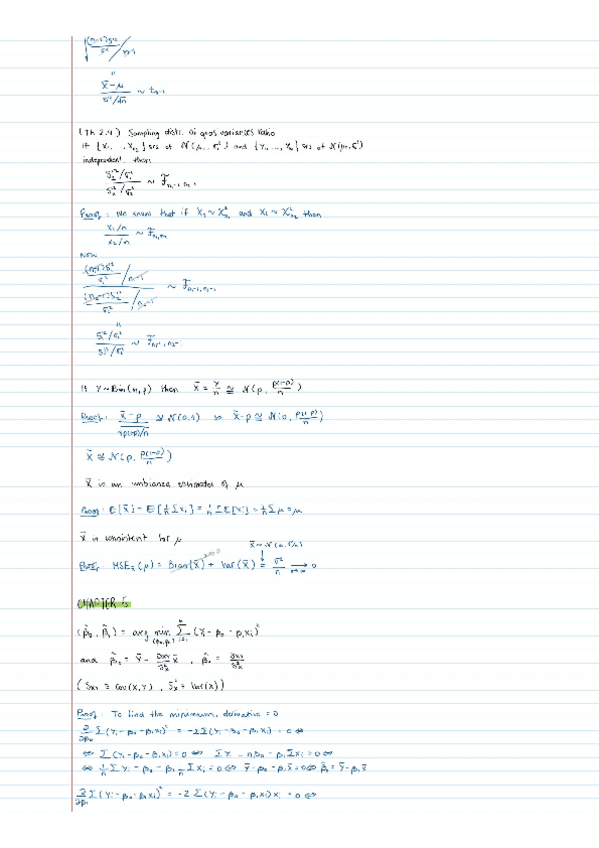 √((n-1)S'²/σ² / n-1)
"
X̄-μ / S'²/√n ~ t_{n-1}
(Th 2.4) Sampling distr. of quasivariances ratio
If {X₁, ..., X_{n₁}} srs of N(μ₁, σ₁²) and {Y₁, ..., Y_{n₂}} srs of N(μ₂, σ₂²)
independent, then
S₁'²/σ₁² / S₂'²/σ₂² ~ F_{n₁-1, n₂-1}
Proof: We know that if X₁ ~ χ²_{n₁} and X₂ ~ χ²_{n₂} then
X₁/n / X₂/n ~ F_{n₁,n₂}
Now
(n₁-1)S₁'²/σ₁² / n₁-1 / (n₂-1)S₂'²/σ₂² / n₂-1 ~ F_{n₁-1, n₂-1}
"
~ F_{n₁-1, n₂-1}
If Y ~ Bin(n, p) then X̄ = Y/n ≅ N(p, p(1-p)/n)
Proof: X̄-p / √p(1-p)/n ≅ N(0,1) so X̄-p ≅ N(0, p(1-p)/n)
X̄ ≅ N(p, p(1-p)/n)
X̄ is an unbiased estimator of μ
Proof: E[X̄] = E[1/n Σxᵢ] = 1/n ΣE[xᵢ] = 1/n Σμ = μ
X̄ is consistent for μ
Proof: MSE_X̄(μ) = Bias(X̄) + Var(X̄) = σ²/n → 0
CHAPTER 5
(β̂₀, β̂₁) = arg min_{(β₀,β₁)} Σ_{i=1}^{n} (Yᵢ - β₀ - β₁xᵢ)²
and β̂₀ = Ȳ - Sxy/Sx² X̄ , = Sxy/Sx²
(Sxy = Cov(X,Y), Sx² = Var(X))
Proof: To find the minimum, derivative = 0
∂/∂β₀ Σ(Yᵢ - β₀ - β₁xᵢ)² = -2Σ(Yᵢ - β₀ - β₁xᵢ) = 0 ⇔
⇔ Σ(Yᵢ - β₀ - β₁xᵢ) = 0 ⇔ ΣYᵢ - nβ₀ - β₁Σxᵢ = 0 ⇔
⇔ 1/n ΣYᵢ - β₀ - β₁ 1/n Σxᵢ = 0 ⇔ Ȳ - β₀ - β₁x̄ = 0 ⇔ β̂₀ = Ȳ - β₁x̄
∂/∂β₁ Σ(Yᵢ - β₀ - β₁xᵢ)² = -2 Σ(Yᵢ - β₀ - β₁xᵢ)xᵢ = 0 ⇔